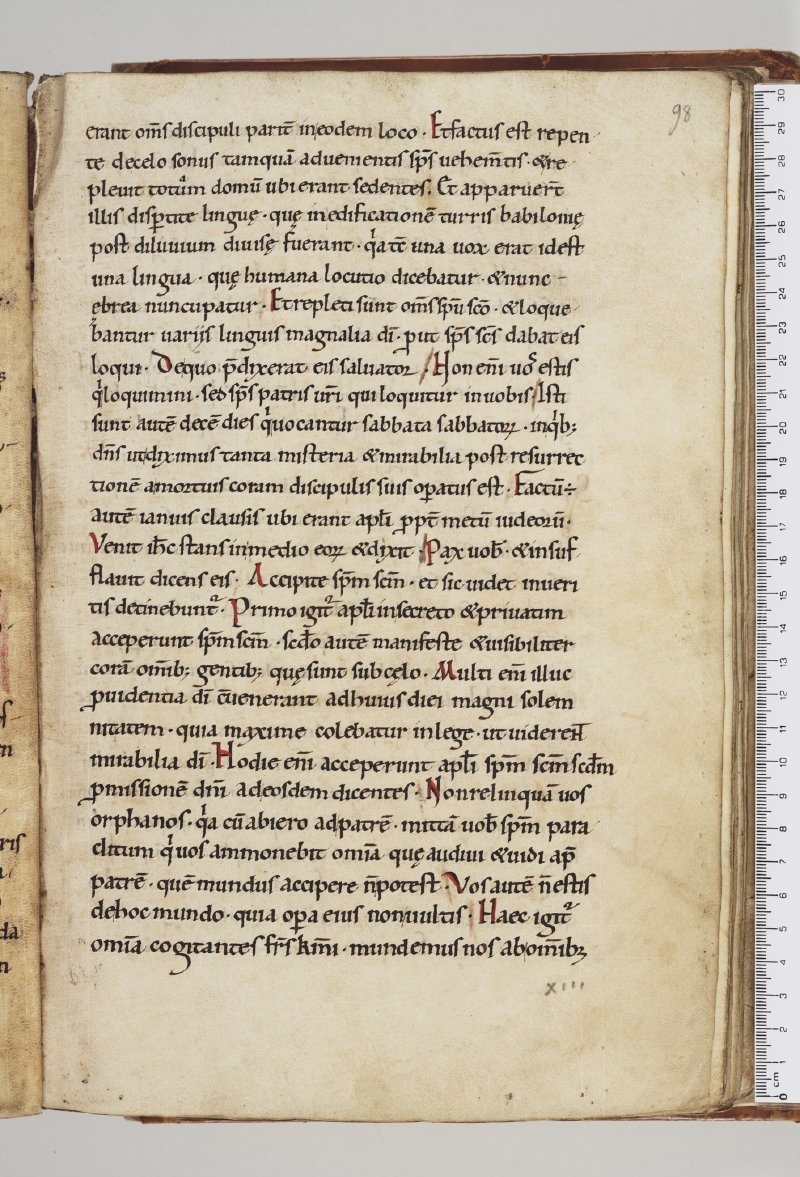 98
erant om̄s discipuli parit̄ in eodem loco · Et factus est repen
te de celo sonus tamquā aduenientis sp̄s uehem̄tis · & re
pleuit totam domū ubi erant sedentes. Et apparuer̄t
illis disp̱tite linguę · quę in edificationē turris babilonię
post diluuium diuisę fuerant · qͣ tc̄ una uox erat id est
una lingua · quę humana locutio dicebatur · & nunc
ebrea nuncupatur · Et repleti sunt om̄s sp̄u sc̄o · & loque
bantur uarijs linguis magnalia dī · ꝓut sp̄s sc̄s dabat eis
loqui · De quo p̄dixerat eis saluator / Non eni̅ uos estis
qͥ loquimini · sed sp̄s patris ur̄i qui loquitur in uobis · Isti
sunt autē decē dies qͥ uocantur sabbata sabbatoꝝ · in qͥb;
dn̄s ut diximus tanta misteria & mirabilia post resurrec
tionē a mortuis coram discipulis suis op̱atus est · Factū ÷
autē ianuis clausis ubi erant apl̄i ꝓpt̄ metū iudeorū ·
Venit ih̄c stans in medio eoꝝ & dixit · Pax uob̄ · & insuf
flauit dicens eis · Accipite sp̄m sc̄m · et sic uidet inueri
tis detinebunt᷑ · Primo igit᷑ apl̄i in secreto & priuatim
acceperunt sp̄m sc̄m · scd̄o autē manifeste & uisibiliter
corā om̄ib; gentib; quę sunt sub celo · Multi eni̅ illuc
ꝓuidentia dī c̄uenerant ad huius diei magni solem
nitatem · quia maxime colebatur in lege · ut uiderent
mirabilia dī · Hodie eni̅ acceperunt apl̄i sp̄m sc̄m scd̄m
ꝓmissionē dn̄i ad eosdem dicentes · Non relinquā uos
orphanos · qͣ cū abiero ad patrē · mittā uob̄ sp̄m para
clitum qͥ uos ammonebit om̄ia quę audiui & uidi ap̄
patrē · quē mundus accipere n̄ potest · Vos autē n̄ estis
de hoc mundo · quia op̱a eius non uultis · Haec igit᷑
om̄ia cogitantes fr̄s km̄i · mundemus nos ab om̄ib;
xiii